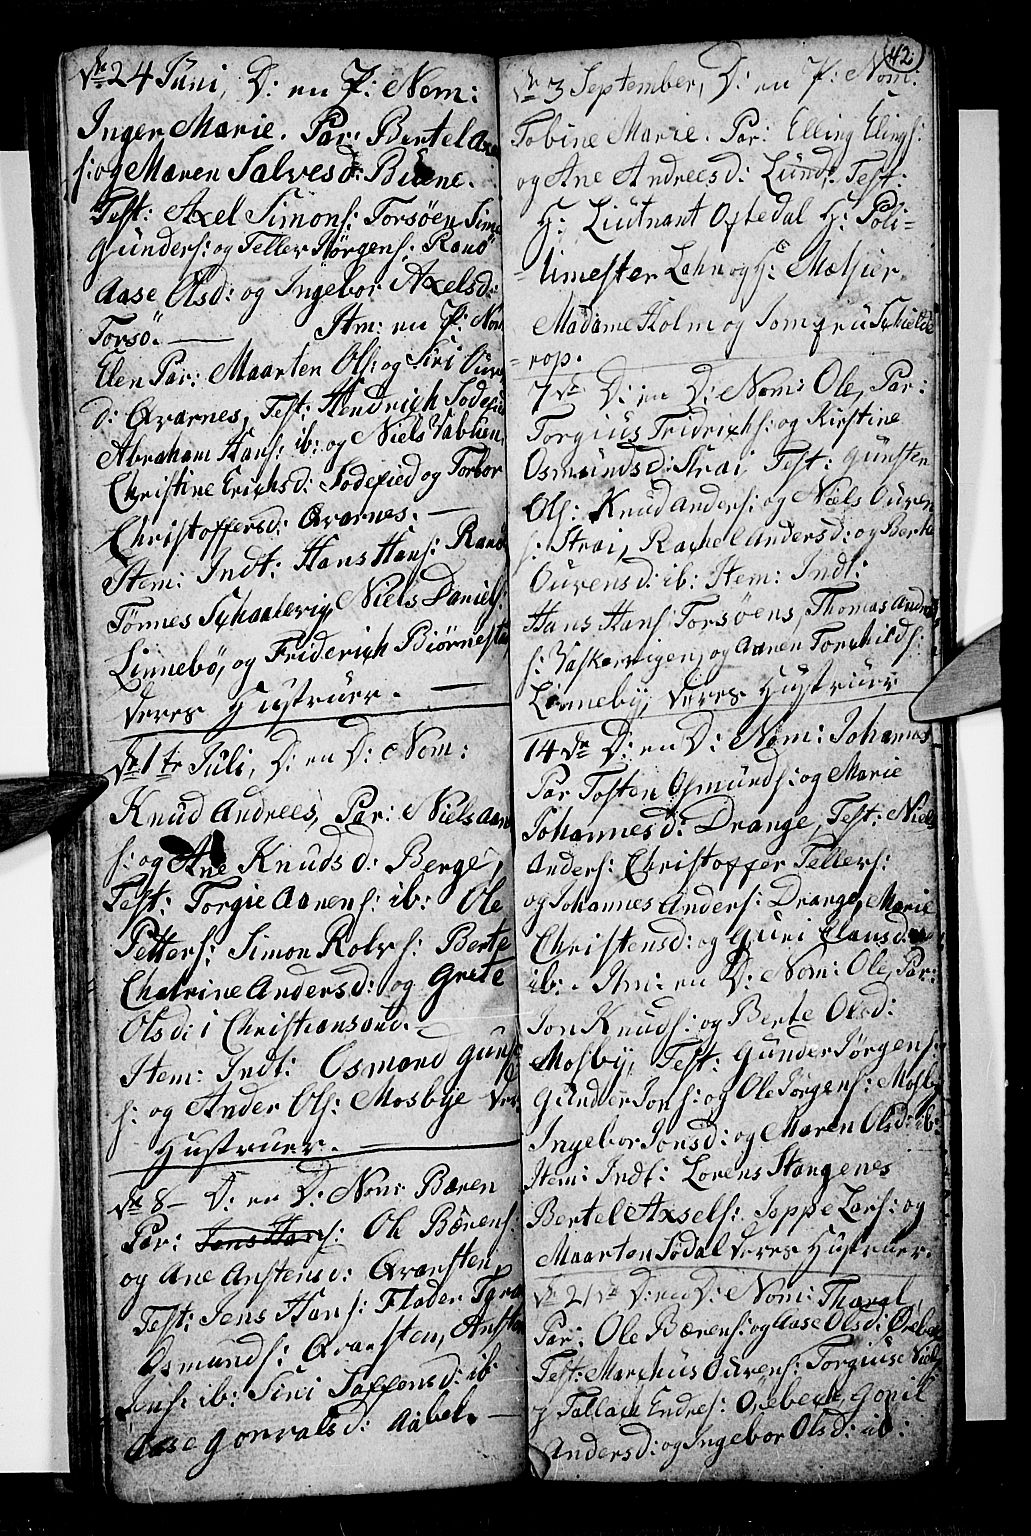 dn 24 Juni, D: en P: Nom:
Inger Marie. Par: Bertel Axe
s: og Maren Salvesd: Buene.
Test: Axel Simons: Torsöen Simo
Gunders: og Teller Jörgens: Randö
Aase Olsd: og Ingebor Axelsd:
Torsö. — Itm: en P: Nom
Elen Par: Maarten Ols: og Siri Ouvs
d: Qvarnes, Test: Hendrich Södefied
Abraham Hans: ib: og Niels Vabuen,
Christine Erichsd: Södefied og Torbor
Christoffersd: Qvarnes. —
Item: Indt: Hans Hans: Randö
Tönnes Schaaleviig, Niels Daniels:
Linnebö, og Friderich Biörnestad
Veres Hustruer. —
dn 1te Juli, D: en D: Nom:
Knud Andrees, Par: Niels Aan
s: og Ane Knudsd: Berge,
Test: Torgie Aanens: ib: Ole
Petters: Simon Rolvs: Berte
Chatrine Andersd: og Grete
Olsd: i Christiansand. —
Item: Indt: Osmond Guns
s: og Ander Ols: Mosbye Ver
Hustruer. —
dn 8 — D: en D: Nom: Bæren
Par: Jens Hans: Ole Bærens
og Ane Anstensd: Qvarsten,
Test: Jens Hans: Flader
Osmunds: Qvarsten, Ansten
Jens: ib: Siri Saffensd: ib
Aase Gonvalsd: Aabel. —
42
dn 3 September, D: en P: Nom:
Tobine Marie. Par: Elling Elings:
og Ane Andreesd: Lund, Test:
H: Liutnant Oftedal H: Poli=
=timester Lahn og H: Mæhsier.
Madame Holm og Jomfru Schielde
=rop.
7de D: en D: Nom: Ole, Par:
Torgius Fridrichs: og Kirstine
Osmundsd: Strai, Test: Gunsten
Ols: Knud Anders: og Niels Ouven
s: Strai, Rachel Andersd: og Berte
Ouvensd: ib: Item: Indt:
Hans Hans Torsöens, Thomas Andre
s: Vaskervigen, og Aanen Torchilds:
Linneby, Veres Hustruer
14de D: en D: Nom: Johannes
Par Tosten Osmunds: og Marie
Johannesd: Drange, Test: Niels
Anders: Christoffer Tellers:
og Johannes Anders: Drange, Marie
Christensd: og Guri Clausd:
ib: - Itm: en D: Nom: Ole, Par:
Jon Knuds: og Berte Olsd:
Mosby, Test: Gunder Jörgens:
Gunder Jons: og Ole Jörgens: Mosby
Ingebor Jonsd: og Maren Olsd: ib:
Item: Indt: Lorens Stangenes
Bertel Axsels: Jeppe Lars: og
Maarten Södal Veres Hustruer.
dn 21de D: en D: Nom: Tharal,
Par: Ole Bærens: og Aase Olsd: Orebek
Test: Marchus Ouvens: Torgiuse Niels
og Tallach Endres: Orebech, Gonil
Andersd: og Ingebor Olsd: ib: